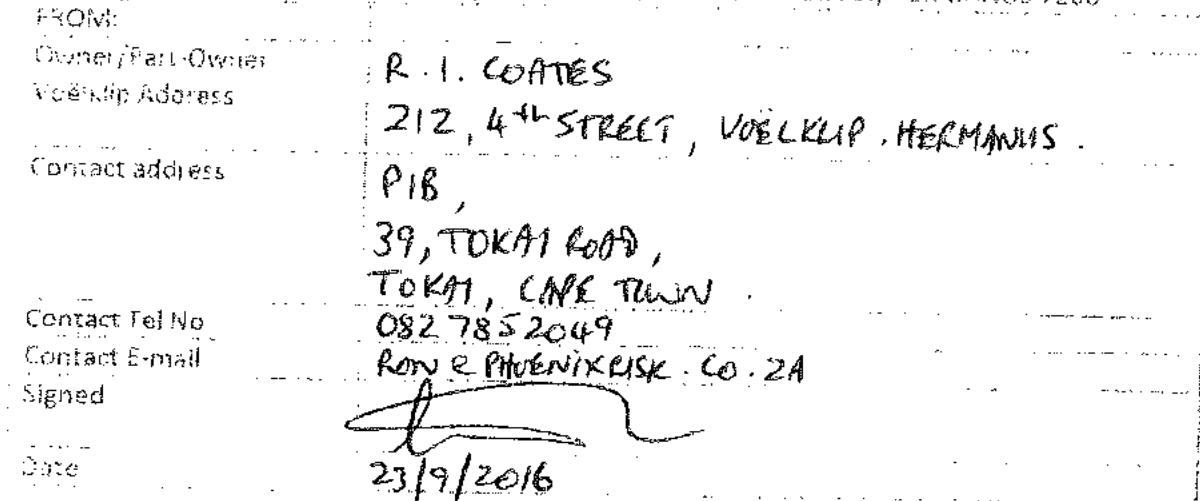 FROM:
Owner/Part-Owner R.I. COATES
Voëlklip Address 212, 4th STREET, VOËLKLIP. HERMANUS.
Contact address PIB,
39, TOKAI ROAD,
TOKAI, CAPE TOWN.
Contact Tel No 082 785 2049
Contact E-mail RON@PHOENIXRISK.CO.ZA
Signed
Date 23/9/2016